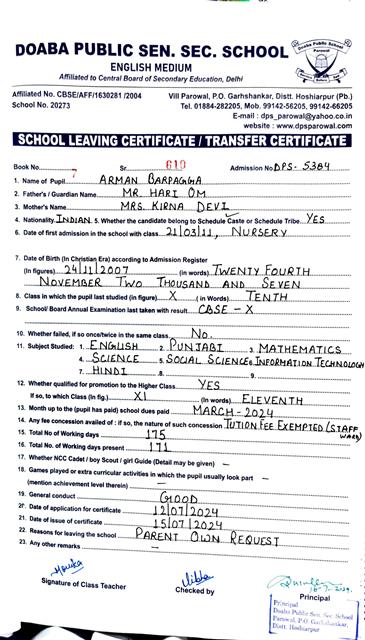 DOABA PUBLIC SEN. SEC. SCHOOL
ENGLISH MEDIUM
Affiliated to Central Board of Secondary Education, Delhi
Doaba Public School
Parowal
Affiliated No. CBSE/AFF/1630281 /2004
School No. 20273
Vill Parowal, P.O. Garhshankar, Distt Hoshiarpur (Pb.)
Tel. 01884-282205, Mob. 99142-56205, 99142-66205
E-mail : dps_parowal@yahoo.co.in
website : www.dpsparowal.com
SCHOOL LEAVING CERTIFICATE / TRANSFER CERTIFICATE
Book No. 7 Sr. 610 Admission No DPS-5384
1. Name of Pupil ARMAN BARPAGGA
2. Father's / Guardian Name MR. HARI OM
3. Mother's Name MRS. KIRNA DEVI
4. Nationality INDIAN 5. Whether the candidate belong to Schedule Caste or Schedule Tribe YES
6. Date of first admission in the school with class 21/03/11, NURSERY
7. Date of Birth (In Christian Era) according to Admission Register
(In figures) 24/11/2007 (in words) TWENTY FOURTH
NOVEMBER TWO THOUSAND AND SEVEN
8. Class in which the pupil studied (in figure) X (in Words) TENTH
9. School/ Board Annual Examination last taken with result CBSE - X
10. Whether failed, if so once/twice in the same class No.
11. Subject Studied: 1. ENGLISH 2. PUNJABI 3. MATHEMATICS
4. SCIENCE 5. SOCIAL SCIENCE 6. INFORMATION TECHNOLOGY
7. HINDI 8. 9.
12. Whether qualified for promotion to the Higher Class YES
If so, to which Class (In fig.) XI (In words) ELEVENTH
13. Month up to the (pupil has paid) school dues paid MARCH-2024
14. Any fee concession availed of : if so, the nature of such concession TUTION FEE EXEMPTED (STAFF WARD)
15. Total No of Working days 175
16. Total No. of Working days present 171
17. Whether NCC Cadet / boy Scout / girl Guide (Detail may be given) –
18. Games played or extra curricular activities in which the pupil usually look part –
(mention achievement level therein) –
19. General conduct GOOD
20. Date of application for certificate 12/07/2024
21. Date of issue of certificate 15/07/2024
22. Reasons for leaving the school PARENT OWN REQUEST
23. Any other remarks –
Signature of Class Teacher
Checked by
Principal
Principal
Doaba Public Sen. Sec. School
Parowal, P.O. Garhshankar,
Distt. Hoshiarpur